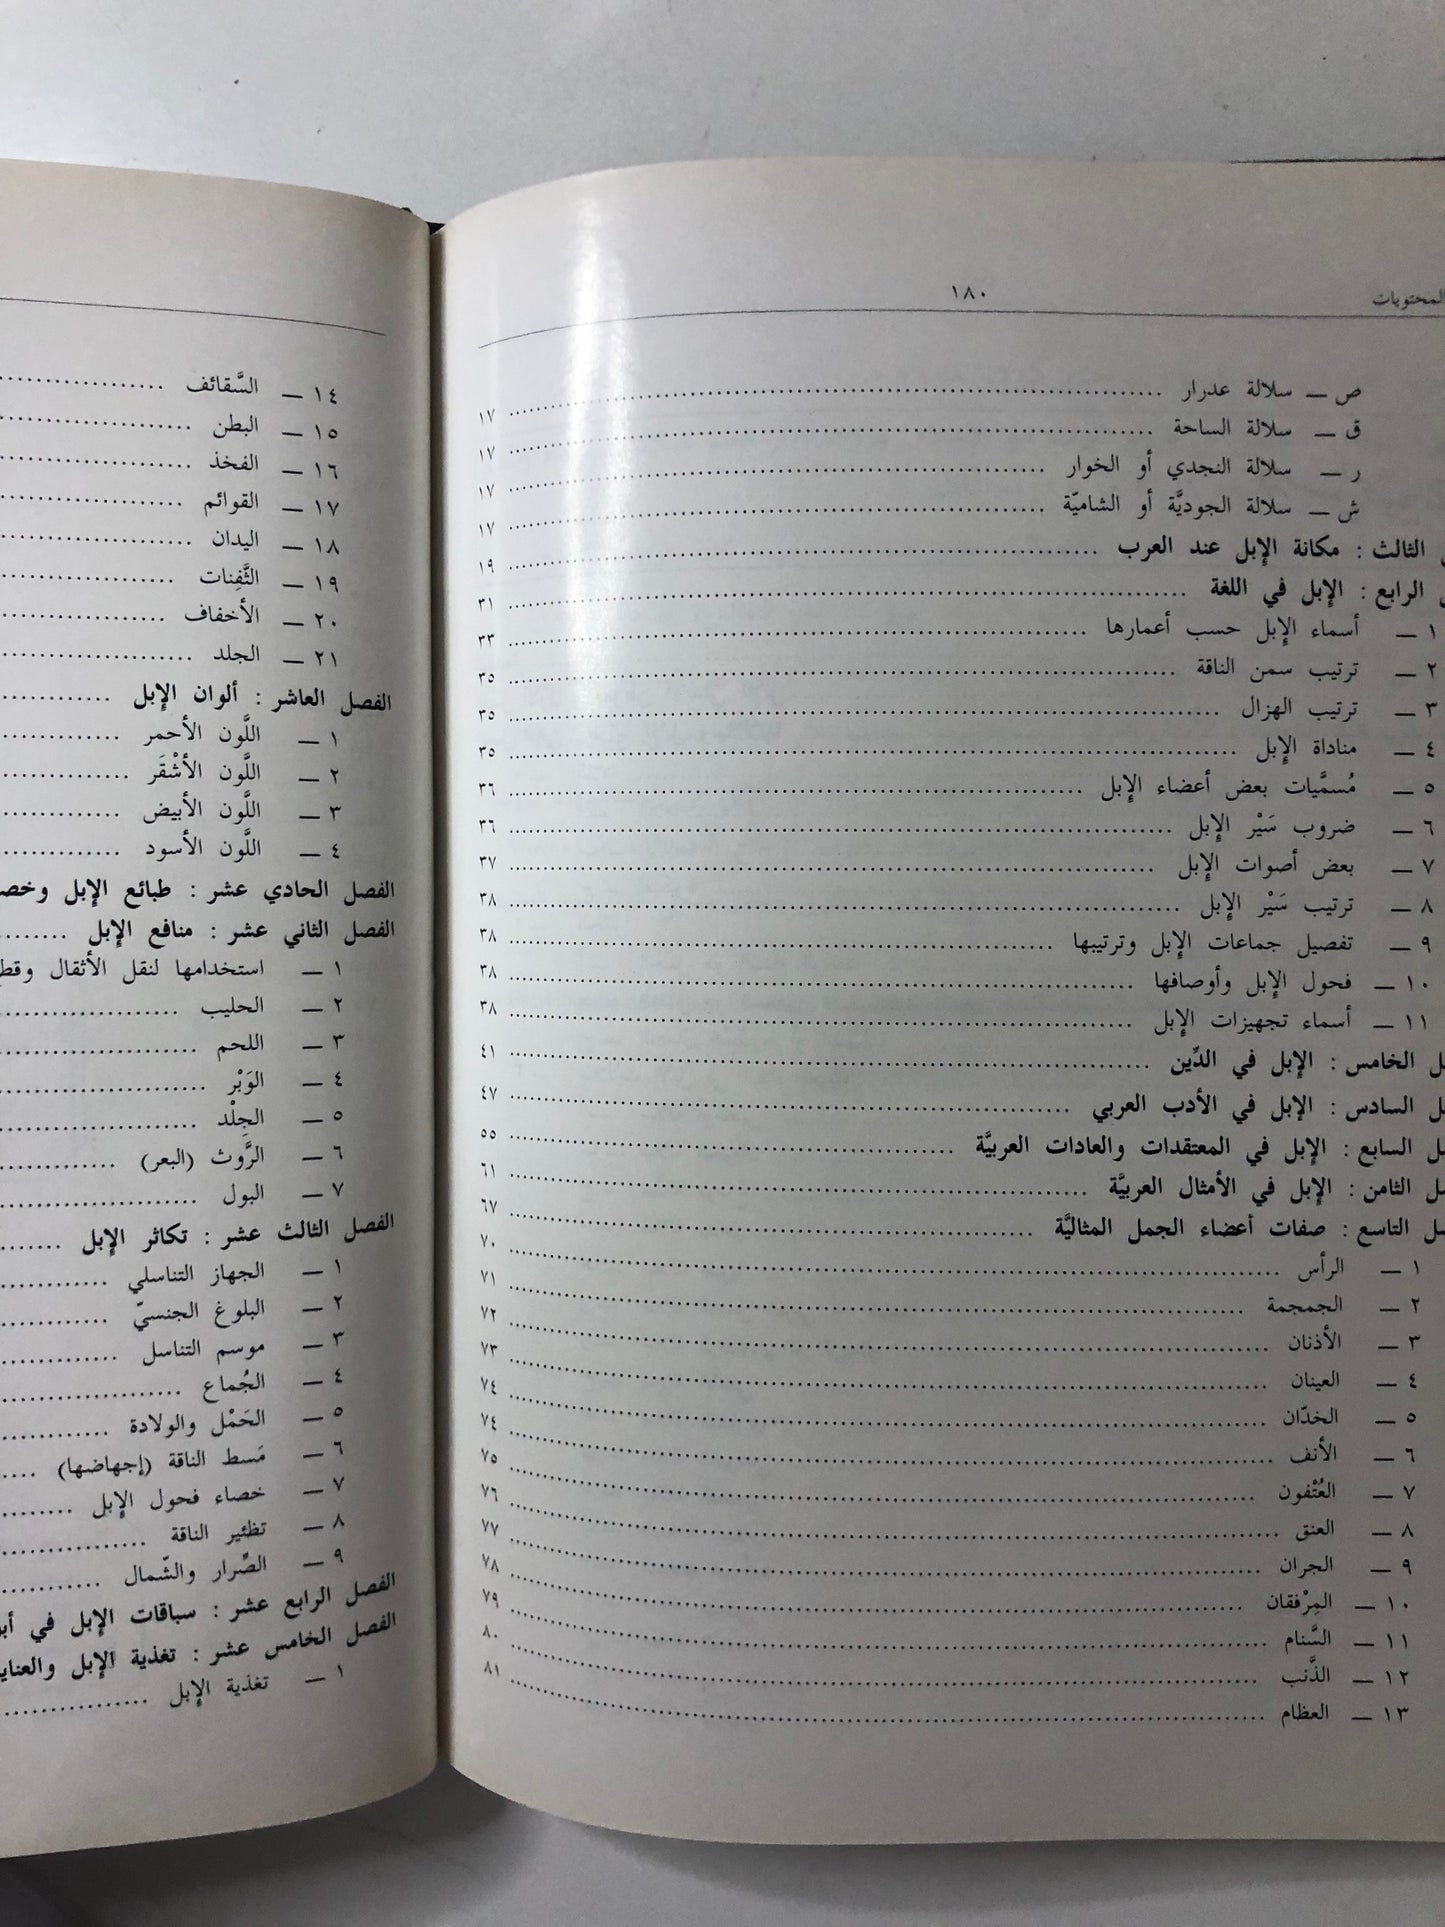 المحتويات ١٨٠
ص — سلالة عدرار ........ ١٧
ق — سلالة الساحة ........ ١٧
ر — سلالة النجدي أو الخوار ........ ١٧
ش — سلالة الجوديَّة أو الشاميّة ........ ١٧
الثالث : مكانة الإبل عند العرب ........ ١٩
الرابع : الإبل في اللغة ........ ٣١
١ — أسماء الإبل حسب أعمارها ........ ٣٣
٢ — ترتيب سمن الناقة ........ ٣٥
٣ — ترتيب الهزال ........ ٣٥
٤ — مناداة الإبل ........ ٣٥
٥ — مُسمَّيات بعض أعضاء الإبل ........ ٣٦
٦ — ضروب سَيْر الإبل ........ ٣٦
٧ — بعض أصوات الإبل ........ ٣٧
٨ — ترتيب سَيْر الإبل ........ ٣٨
٩ — تفصيل جماعات الإبل وترتيبها ........ ٣٨
١٠ — فحول الإبل وأوصافها ........ ٣٨
١١ — أسماء تجهيزات الإبل ........ ٣٨
الخامس : الإبل في الدِّين ........ ٤١
السادس : الإبل في الأدب العربي ........ ٤٧
السابع : الإبل في المعتقدات والعادات العربيَّة ........ ٥٥
الثامن : الإبل في الأمثال العربيَّة ........ ٦١
التاسع : صفات أعضاء الجمل المثاليَّة ........ ٦٧
١ — الرأس ........ ٧٠
٢ — الجمجمة ........ ٧١
٣ — الأذنان ........ ٧٢
٤ — العينان ........ ٧٣
٥ — الخدّان ........ ٧٤
٦ — الأنف ........ ٧٤
٧ — العُثْفون ........ ٧٥
٨ — العنق ........ ٧٦
٩ — الجران ........ ٧٧
١٠ — المِرْفقان ........ ٧٨
١١ — السَّنام ........ ٧٩
١٢ — الذَّنب ........ ٨٠
١٣ — العظام ........ ٨١
١٤ — السَّقائف ........
١٥ — البطن ........
١٦ — الفخذ ........
١٧ — القوائم ........
١٨ — اليدان ........
١٩ — الثَّفِنات ........
٢٠ — الأخفاف ........
٢١ — الجلد ........
الفصل العاشر : ألوان الإبل ........
١ — اللَّون الأحمر ........
٢ — اللَّون الأشْقَر ........
٣ — اللَّون الأبيض ........
٤ — اللَّون الأسود ........
الفصل الحادي عشر : طبائع الإبل
الفصل الثاني عشر : منافع الإبل ........
١ — استخدامها لنقل الأثقال
٢ — الحليب ........
٣ — اللحم ........
٤ — الوَبْر ........
٥ — الجِلْد ........
٦ — الرَّوث (البعر) ........
٧ — البول ........
الفصل الثالث عشر : تكاثر الإبل ........
١ — الجهاز التناسلي ........
٢ — البلوغ الجنسيّ ........
٣ — موسم التناسل ........
٤ — الجُماع ........
٥ — الحَمْل والولادة ........
٦ — مَسط الناقة (إجهاضها) ........
٧ — خصاء فحول الإبل ........
٨ — تظئير الناقة ........
٩ — الصِّرار والشّمال ........
الفصل الرابع عشر : سباقات الإبل في
الفصل الخامس عشر : تغذية الإبل
١ — تغذية الإبل ........